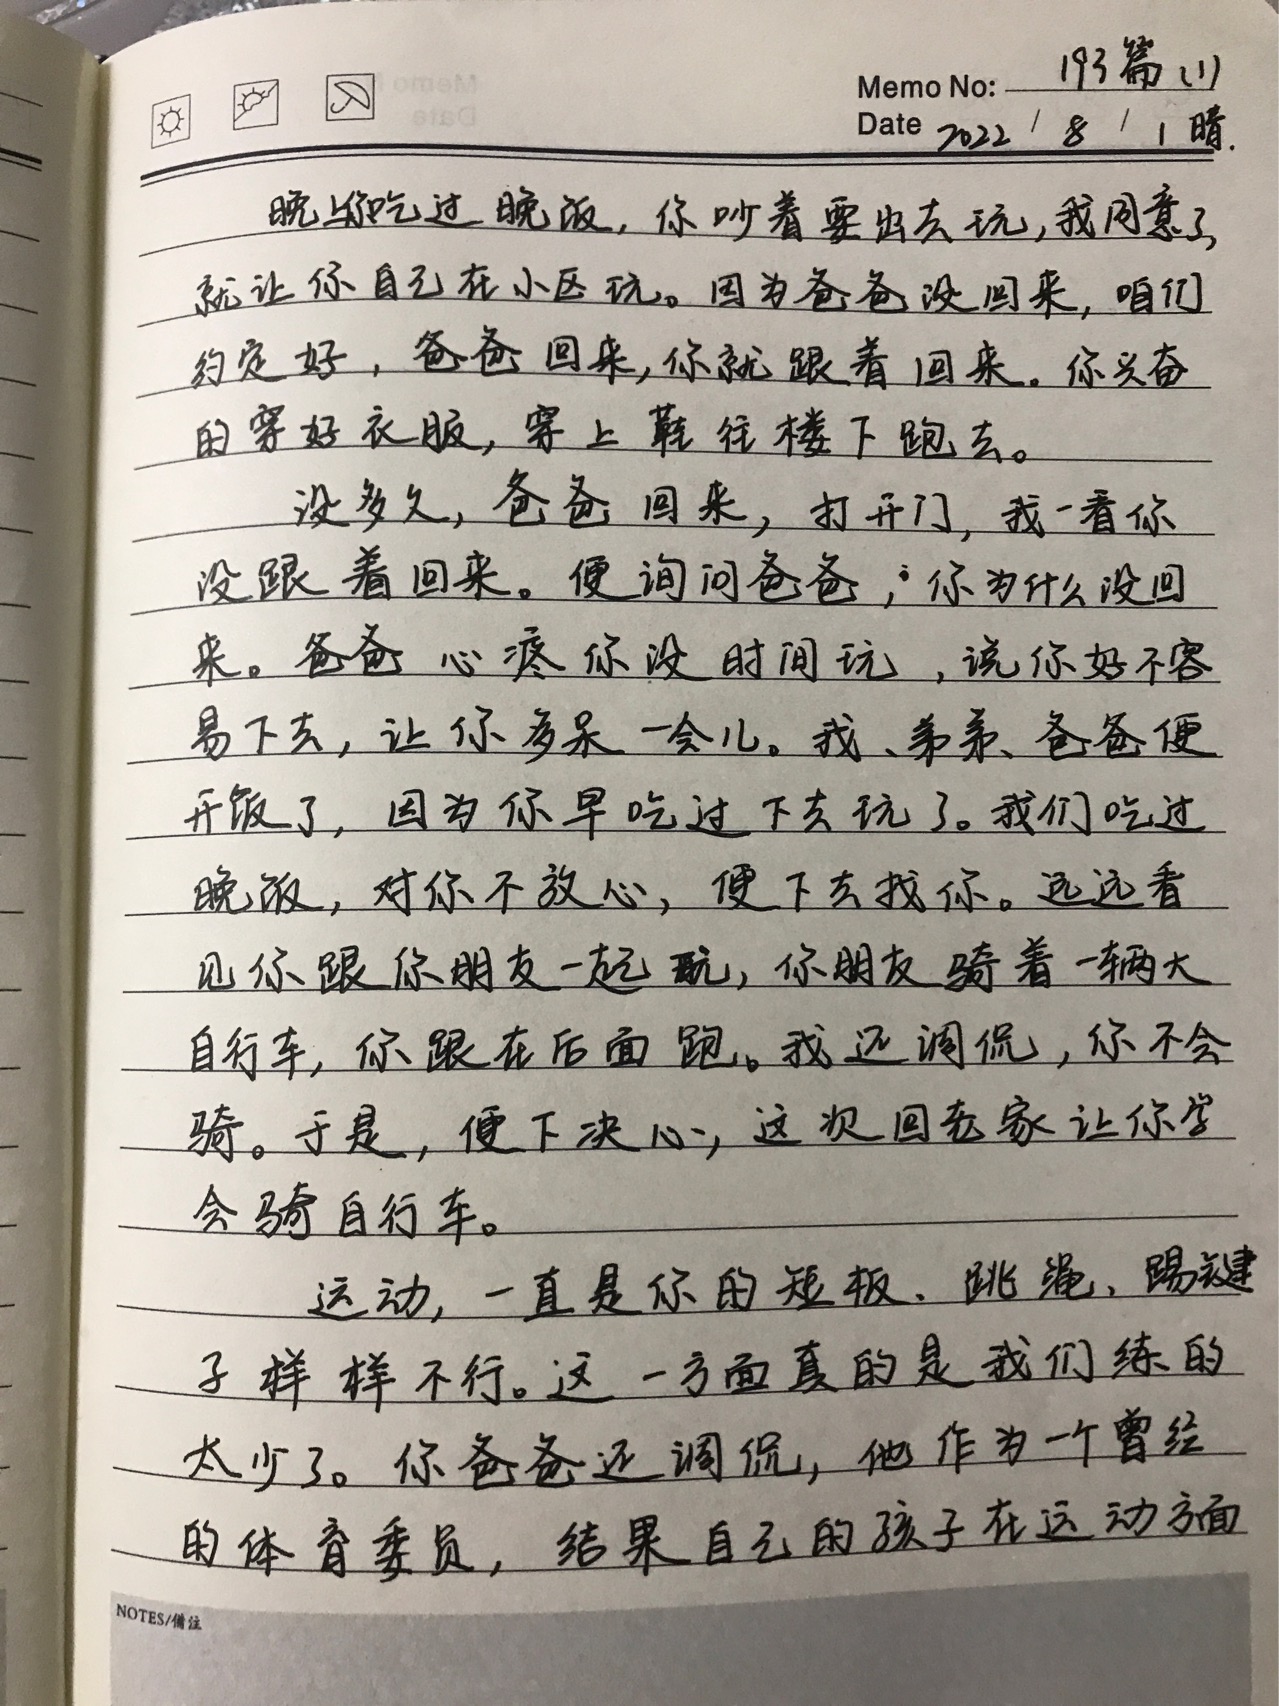 Memo No: 193篇(1)
Date 2022 / 8 / 1 晴.
晚上你吃过晚饭，你吵着要出去玩，我同意了，
就让你自己在小区玩。因为爸爸没回来，咱们
约定好，爸爸回来，你就跟着回来。你兴奋
的穿好衣服，穿上鞋往楼下跑去。
没多久，爸爸回来，打开门，我一看你
没跟着回来。便询问爸爸，你为什么没回
来。爸爸心疼你没时间玩，说你好不容
易下去，让你多呆一会儿。我、弟弟、爸爸便
开饭了，因为你早吃过下去玩了。我们吃过
晚饭，对你不放心，便下去找你。远远看
见你跟你朋友一起玩，你朋友骑着一辆大
自行车，你跟在后面跑。我还调侃，你不会
骑。于是，便下决心，这次回老家让你学
会骑自行车。
运动，一直是你的短板、跳绳、踢键
子样样不行。这一方面真的是我们练的
太少了。你爸爸还调侃，他作为一个曾经
的体育委员，结果自己的孩子在运动方面
NOTES/备注